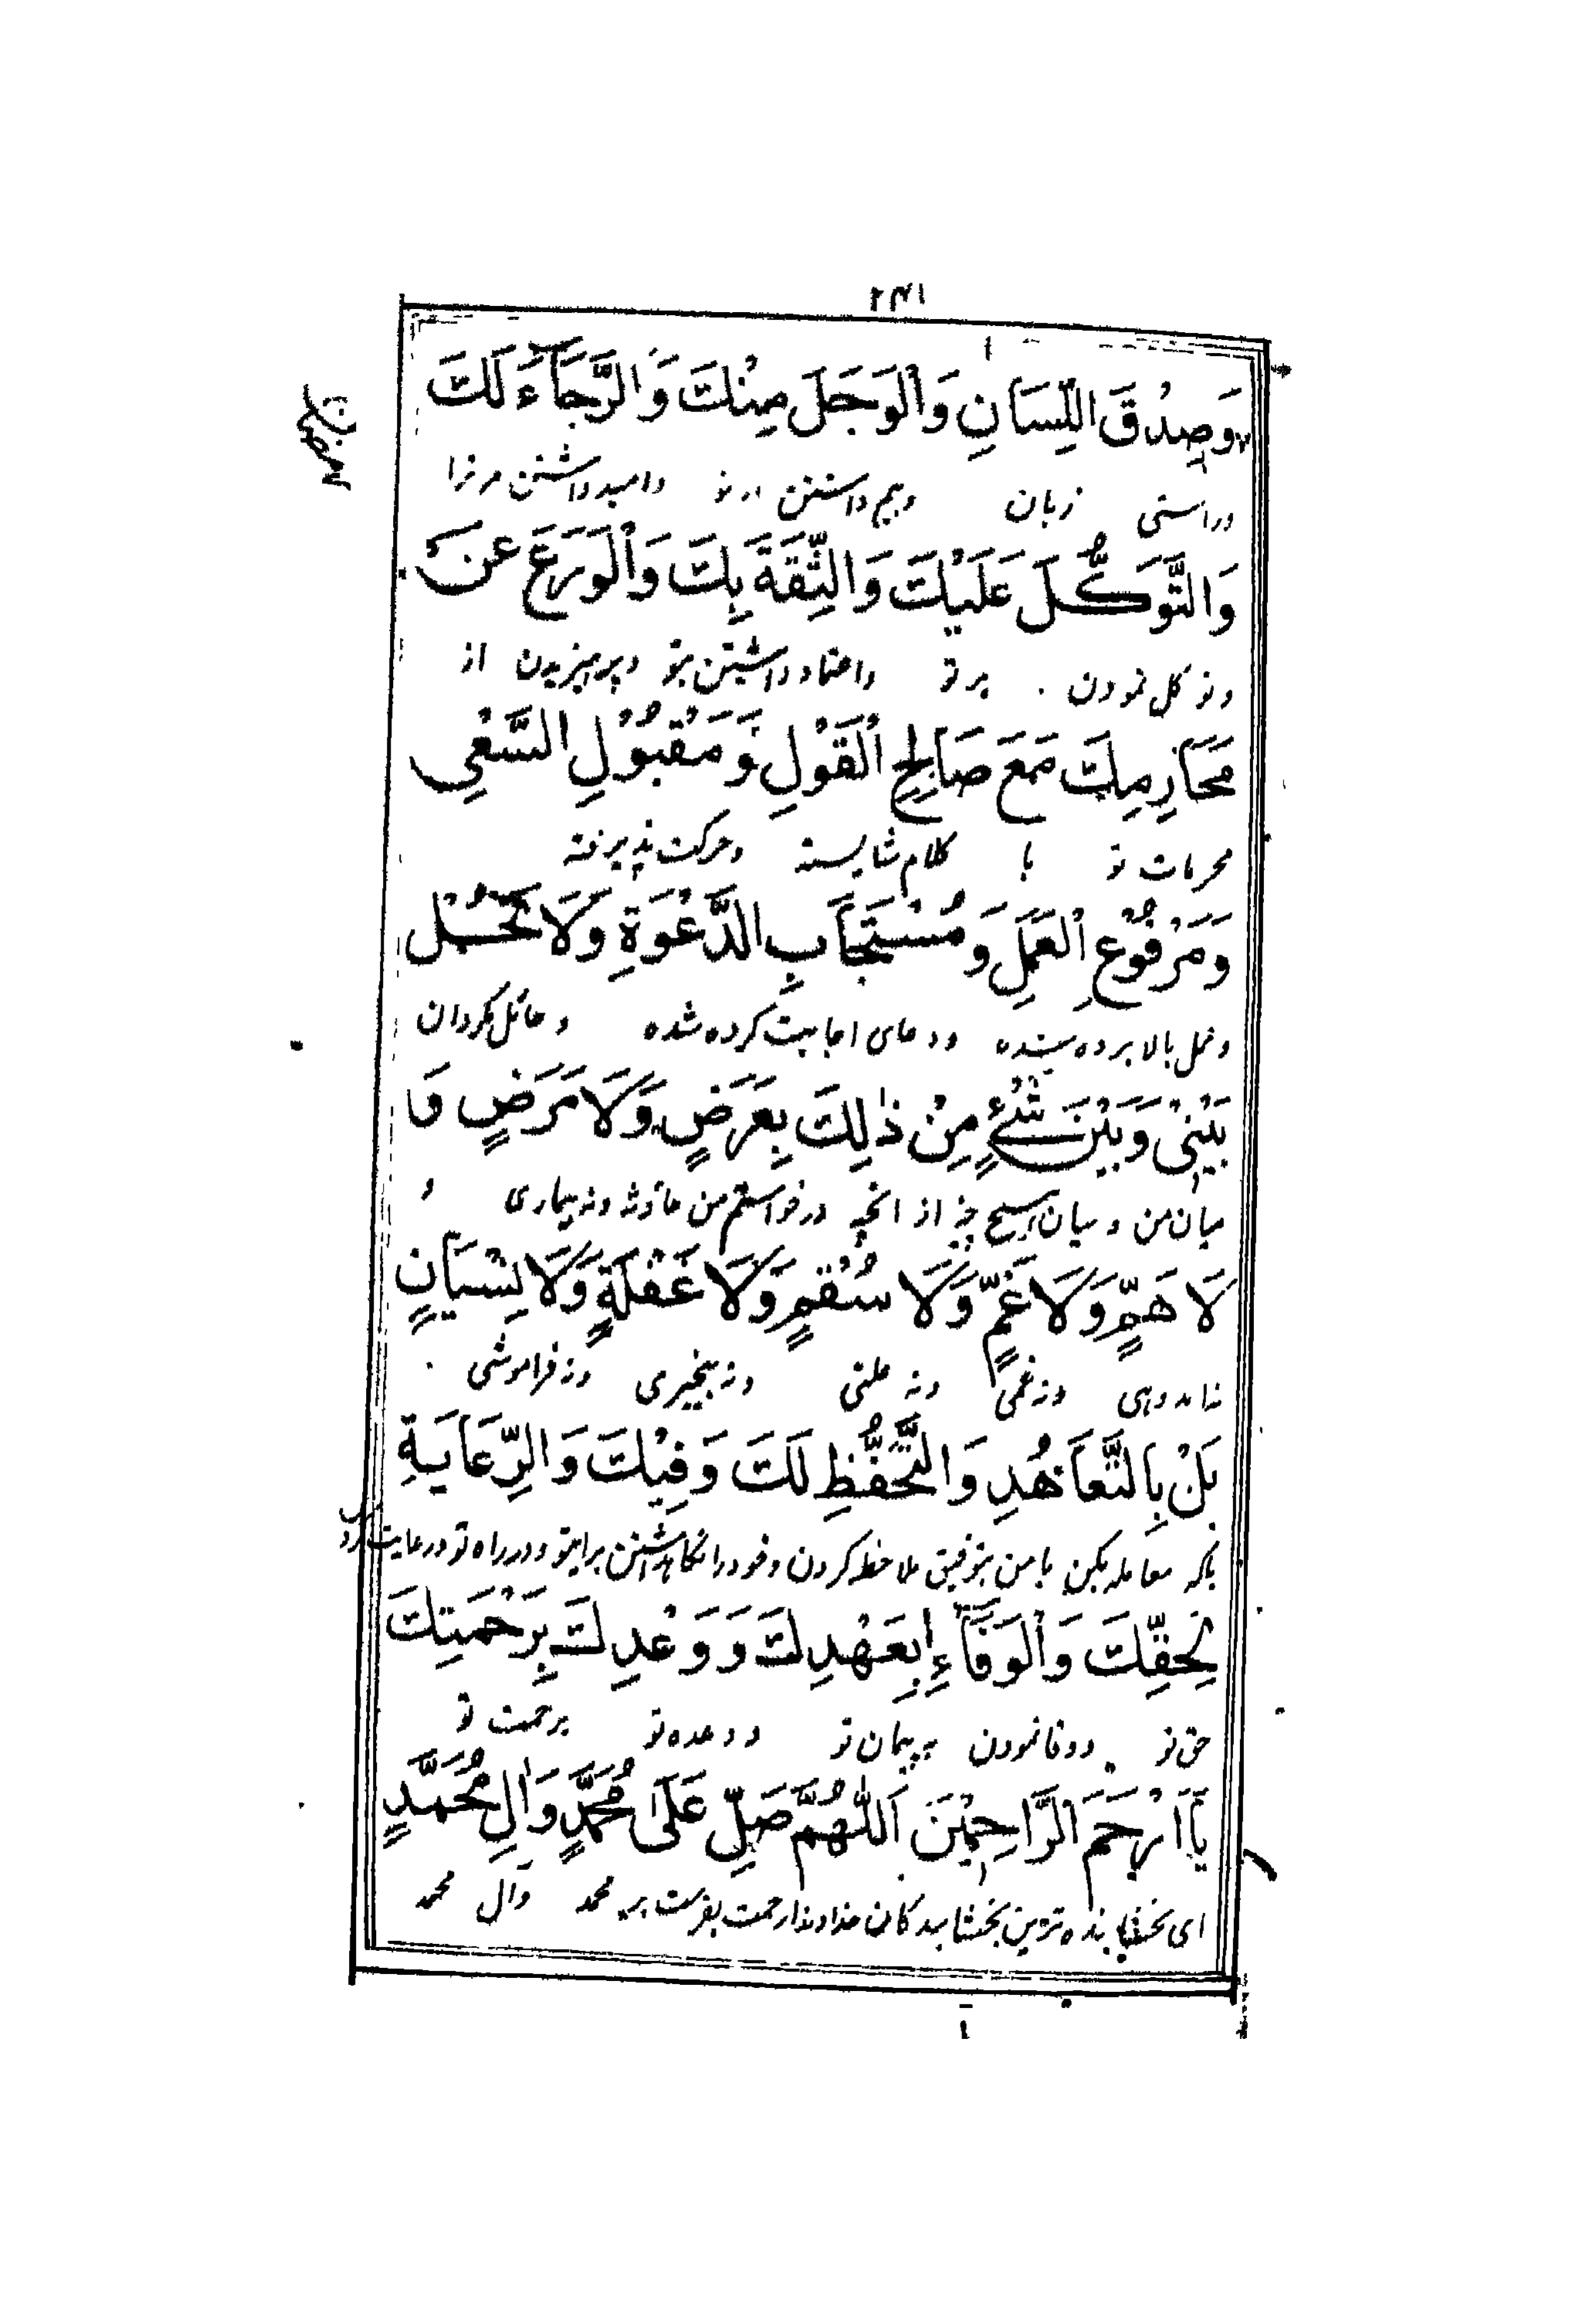 ۲۴۱
وَصِدْقَ اللِّسَانِ وَالْوَجَلَ مِنْكَ وَالرَّجَآءَ لَكَ
وراستی زبان وبیم داشتن از تو وامید داشتن مر ترا
وَالتَّوَكُّلَ عَلَيْكَ وَالثِّقَةَ بِكَ وَالْوَرَعَ عَنْ
وتوکل نمودن بر تو واعتماد داشتن بتو وپرهیزیدن از
مَحَارِمِكَ مَعَ صَالِحِ الْقَوْلِ وَمَقْبُوْلِ السَّعْيِ
محرمات تو با کلام شایسته وحرکت پذیرفته
وَمَرْفُوْعِ الْعَمَلِ وَمُسْتَجَابِ الدَّعْوَةِ وَلَا تَحُلْ
وعمل بالا برده شده ودعای اجابت کرده شده وحائل مگردان
بَيْنِيْ وَبَيْنَ شَيْءٍ مِنْ ذٰلِكَ بِعَرَضٍ وَلَا مَرَضٍ وَ
میان من و میان هیچ چیز از انچه درخواستم من حادثه ونه بیماری و
لَا هَمٍّ وَلَا غَمٍّ وَلَا سُقْمٍ وَلَا غَفْلَةٍ وَلَا نِسْيَانٍ
نه اندوهی ونه غمی ونه علتی ونه بیخبری ونه فراموشی
بَلْ بِالتَّعَاهُدِ وَالتَّحَفُّظِ لَكَ وَفِيْكَ وَالرِّعَايَةِ
بلکه معامله بکن با من بتوفیق ملاحظه کردن وخود را نگاهداشتن برایتو ودر راه تو ورعایت کردن
لِحَقِّكَ وَالْوَفَآءِ بِعَهْدِكَ وَوَعْدِكَ بِرَحْمَتِكَ
حق تو ووفا نمودن به پیمان تو ووعده تو برحمت تو
يَآ اَرْحَمَ الرَّاحِمِيْنَ اَللّٰهُمَّ صَلِّ عَلٰى مُحَمَّدٍ وَاٰلِ مُحَمَّدٍ
ای بخشاینده ترین بخشایندگان خداوندا رحمت بفرست بر محمد وآل محمد